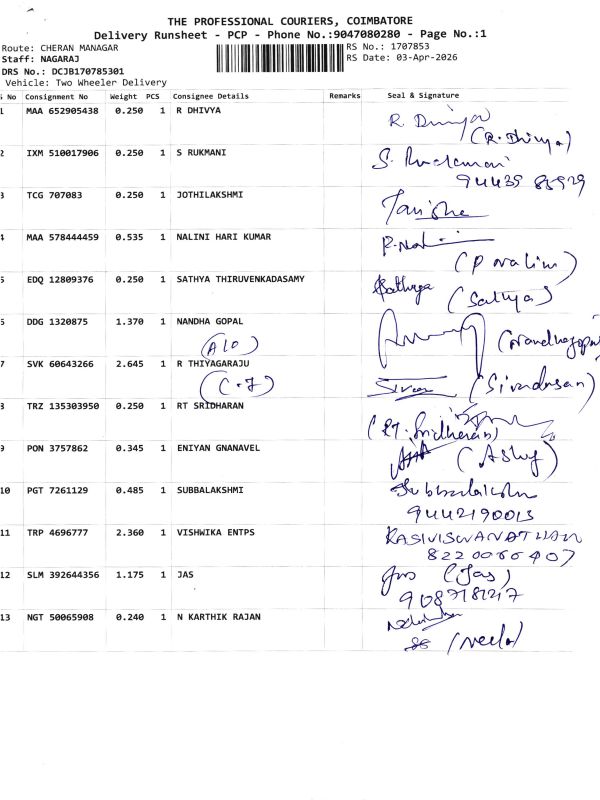 THE PROFESSIONAL COURIERS, COIMBATORE
Delivery Runsheet - PCP - Phone No.:9047080280 - Page No.:1
Route: CHERAN MANAGAR
RS No.: 1707853
Staff: NAGARAJ
RS Date: 03-Apr-2026
DRS No.: DCJB170785301
Vehicle: Two Wheeler Delivery
No Consignment No Weight PCS Consignee Details Remarks Seal & Signature
1 MAA 652905438 0.250 1 R DHIVYA
(R. Dhivya)
2 IXM 510017906 0.250 1 S RUKMANI
94439 85929
3 TCG 707083 0.250 1 JOTHILAKSHMI
4 MAA 578444459 0.535 1 NALINI HARI KUMAR
(P nalini)
5 EDQ 12809376 0.250 1 SATHYA THIRUVENKADASAMY Sathya
(Sathya)
6 DDG 1320875 1.370 1 NANDHA GOPAL
(A10)
7 SVK 60643266 2.645 1 R THIYAGARAJU (Sivadasan)
(C-7)
8 TRZ 135303950 0.250 1 RT SRIDHARAN
(RT. Sridharan)
9 PON 3757862 0.345 1 ENIYAN GNANAVEL
10 PGT 7261129 0.485 1 SUBBALAKSHMI
9442190013
11 TRP 4696777 2.360 1 VISHWIKA ENTPS KASIVISWANATHAN
8220066407
12 SLM 392644356 1.175 1 JAS (Jas)
13 NGT 50065908 0.240 1 N KARTHIK RAJAN